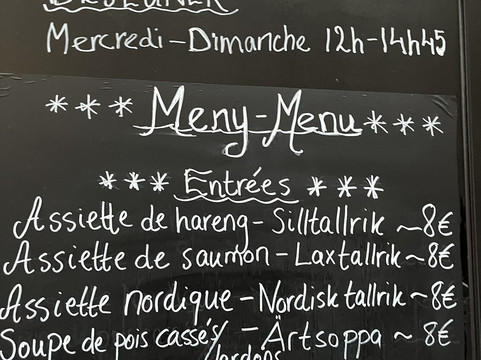 DÉJEUNER
Mercredi-Dimanche 12h-14h45
*** Meny-Menu ***
*** Entrées ***
Assiette de hareng - Silltallrik ~8€
Assiette de saumon - Laxtallrik ~8€
Assiette nordique - Nordisk tallrik ~8€
Soupe de pois cassés/ - Ärtsoppa ~ 8€
lardons